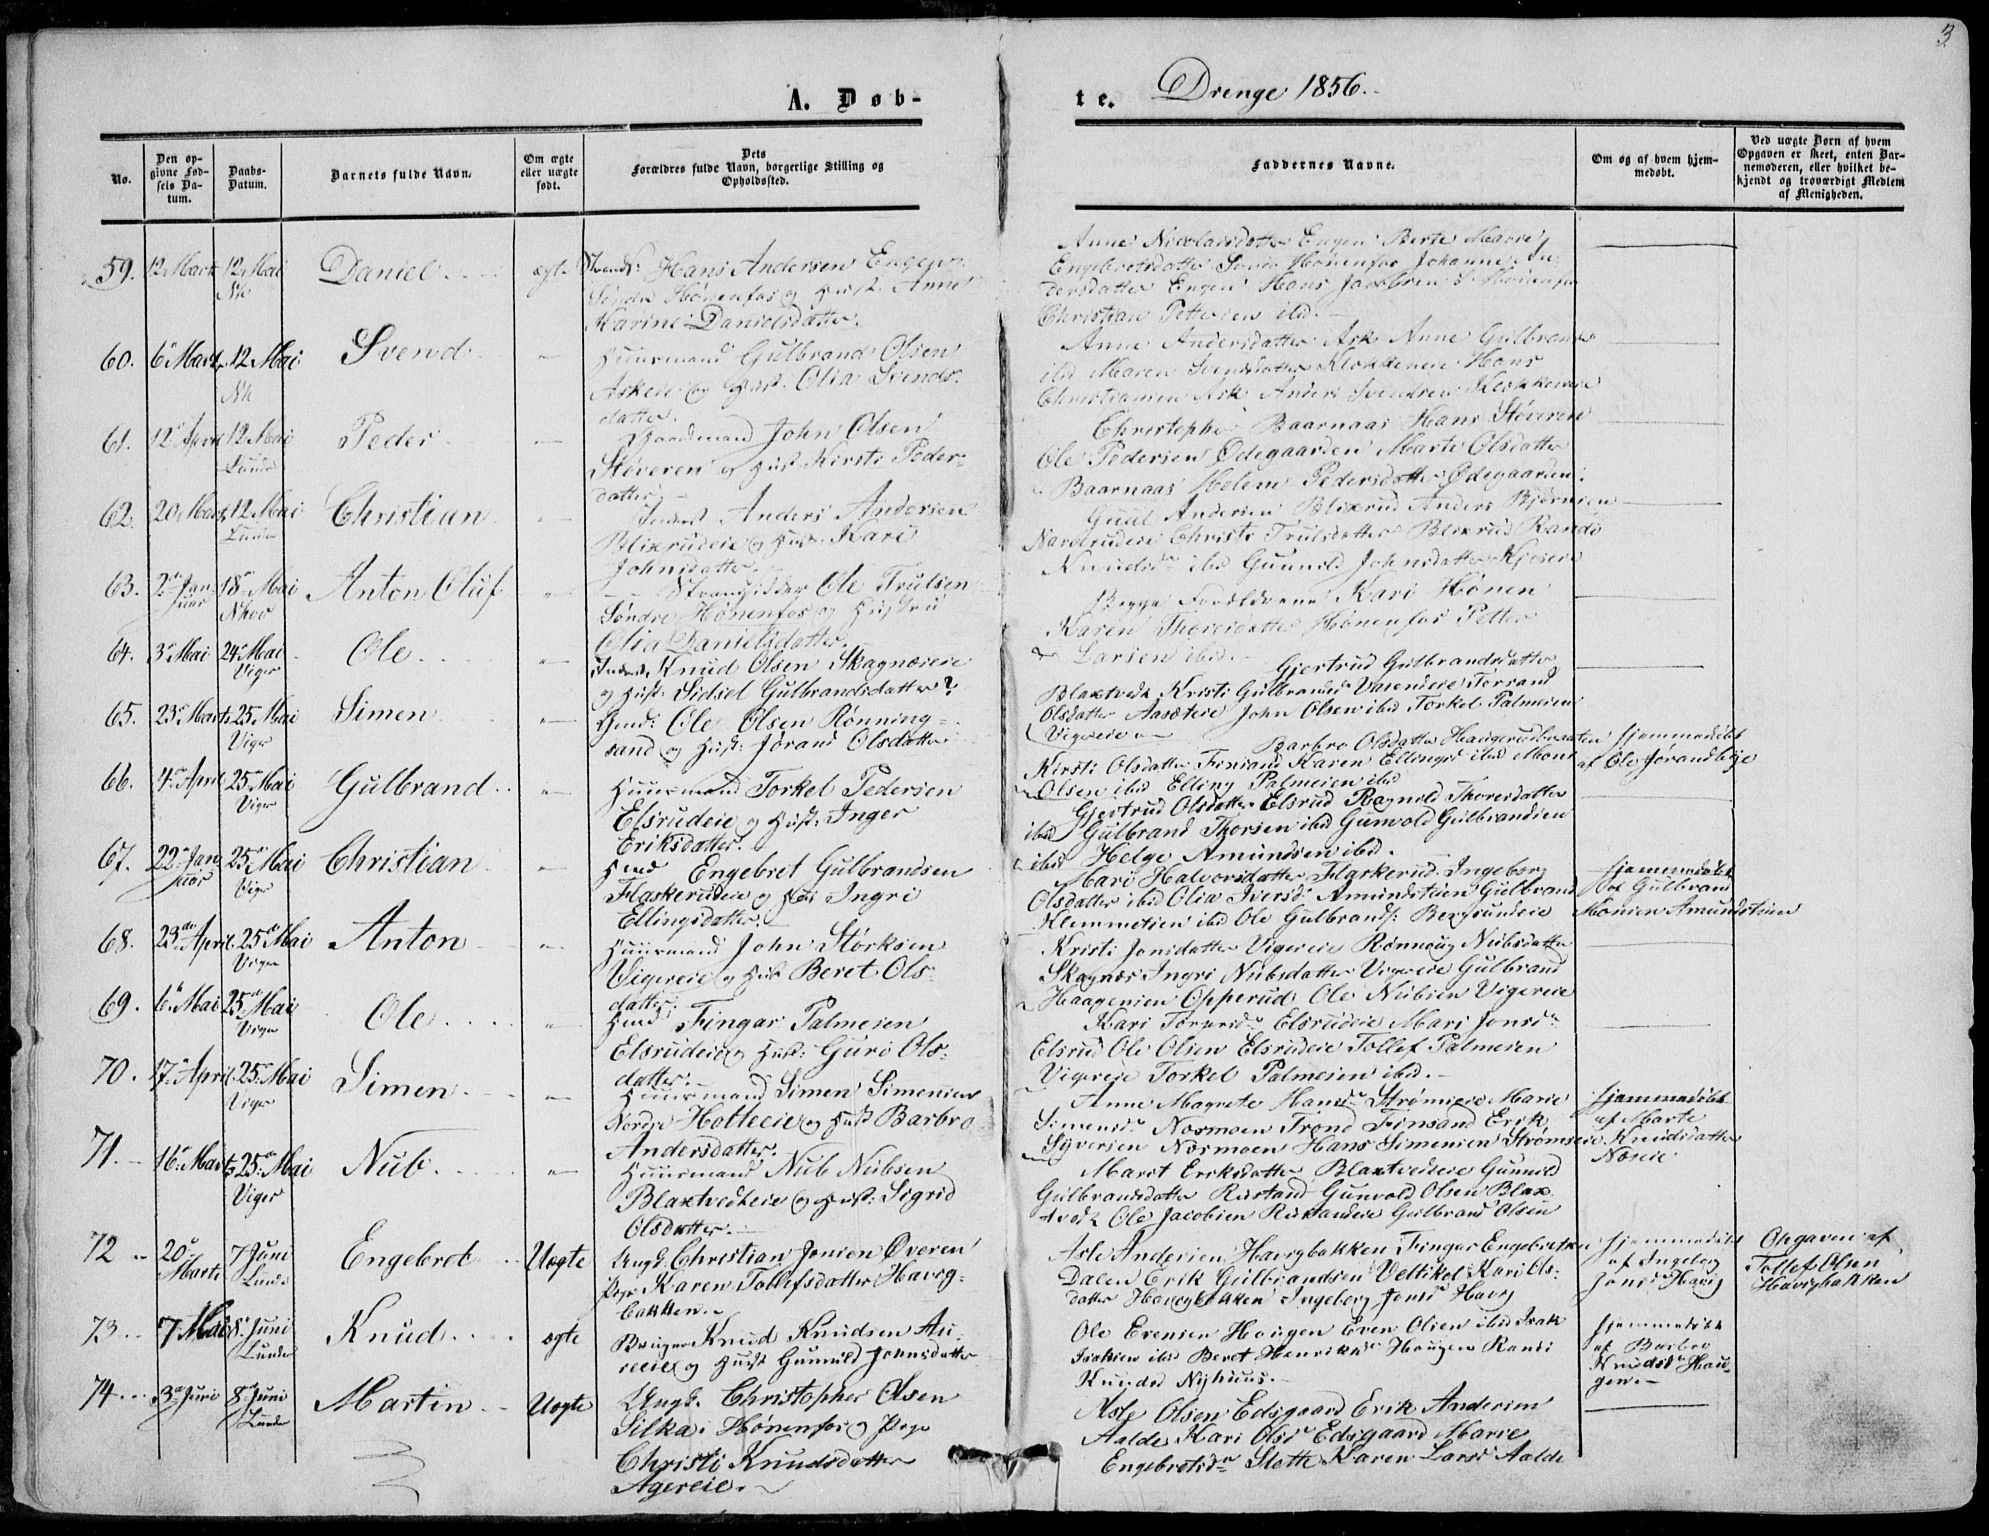 3
A. Døb-
te.
Drenge 1856.
No.
Den op-
givne Fød-
sels Da-
tum.
Daabs-
Datum.
Barnets fulde Navn.
Om ægte
eller uægte
født.
Dets
Forældres fulde Navn, borgerlige Stilling og
Opholdssted.
Faddernes Navne.
Om og af hvem hjem-
medøbt.
Ved uægte Børn af hvem
Opgaven er skeet, enten Bar-
nemoderen, eller hvilket be-
kjendt og troværdigt Medlem
af Menigheden.
59. 12 Marts 12 Mai Daniel ægte
Hans Andersen Engen
Søndre Hønenfos og Hust. Anne
Karine Danielsdatter.
Anne Nicolaisdatter Engen Berte Marie
Engebretsdatter Søndre Hønenfos Johanne An-
dersdatter Engen Hans Jacobsen S. Hønenfos
Christian Pettersen ibid.
60. 6 Marts 12 Mai Svend
Huusmand Gulbrand Olsen
Askeie og Hust. Olia Svends-
datter.
Anne Andersdatter Ask Anne Gulbrands
ibid Maren Svendsdatter Klokkereie Hans
Christiansen Ask Anders Svendsen Klokkereie
61. 12 April 12 Mai Peder
Lunde
Gaardmand John Olsen
Støveren og Hust Kirsti Peder-
datter.
Christopher Baarnaas Hans Støveren
Ole Pedersen Ødegaarden Marte Olsdatter
Baarnaas Helene Pedersdatter Ødegaarden.
62. 20 Marts 12 Mai Christian
Lunde
Inderst Anders Andersen
Blixrudeie og Hust. Kari
Johnsdatter.
Guul Andersen Blixrud Anders Bjørnsen
Christi Trulsdatter Blixrud Randi
Knudsdr ibid Gunnild Johnsdatter
63. 2 Jan- 18 Mai Anton Oluf
nuar
Strandsidder Ole Trulsen
Søndre Hønenfos og Hustru
Olia Danielsdatter.
Begge Forældrene Kari Hønen
Karen Thoresdatter Hønenfos Petter
Larsen ibid.
64. 3 Mai 24 Mai Ole
Viger
Inderst Knud Olsen Skagnæseie
og Hust: Sidsel Gulbrandsdatter
Gjertrud Gulbrandsdatter
Blaxtvedt Kristi Gulbrandsd Torsand
Olsdatter Aasæteie John Olsen ibid Torkel Palmesen
Vigereie
65. 23 Marts 25 Mai Simen
Viger
Gmd: Ole Olsen Rønning-
sand og Hust: Jørand Olsdatter
Barbro Olsdatter Haugerudbraaten
Kirsti Olsdatter Finsand Karen Ellingsd ibid Mons
Olsen ibid Elling Palmesen ibid
Hjemmedøbt
af Ole Jørandblije
66. 4 April 25 Mai Gulbrand
Viger
Huusmand Torkel Pedersen
Elsrudeie og Hust: Inger
Eriksdatter.
Gjertrud Olsdatter Elsrud Ragnild Thoresdatter
ibid Gulbrand Thorsen ibid Gunvold Gulbrandsen
ibid Helge Amundsen ibid.
67. 22 Jan 25 Mai Christian
nuar Viger
Hmd Engebret Gulbrandsen
Flaskerudeie og Hust Ingri
Ellingsdatter.
Mari Halvorsdatter Flaskerud Ingeborg
Olsdatter ibid Olia Iversd Amundstien Gulbrand
Klemmetsen ibid Ole Gulbrands: Bergsundeie
Hjemmedøbt
af Gulbrand
Monsen Amundstien
68. 23 April 25 Mai Anton
Viger
Huusmand John Størksen
Vigereie og Hust Beret Ols-
datter.
Kristi Jonsdatter Vigereie Rønnoug Nubsdatter
Skagnæs Ingri Nubsdatter Vigereie Gulbrand
Haagensen Opperud Ole Nubsen Vigereie
69. 6 Mai 25 Mai Ole
Viger
Hmd Fingar Palmesen
Elsrudeie og Hust: Guri Ols-
datter.
Kari Torgersdr Elsrudeie Mari Jonsdr
Elsrud Ole Olsen Elsrudeie Tollef Palmesen
Vigereie Torkel Palmesen ibid.
70. 17 April 25 Mai Simen
Viger
Huusmand Simen Simensen
Nordre Holteeie og Hust Barbro
Andersdatter.
Anne Magrete Hansdr Strømseie Marie
Simensdr Nøsmoen Trond Finsand Erik
Syversen Nøsmoen Hans Simensen Strømseie
Hjemmedøbt
af Marte
Knudsdatter
Næseie
71. 16 Marts 25 Mai Nub
Viger
Huusmand Nub Nubsen
Blaxtvedteie og Hust: Sigrid
Olsdatter.
Marit Eriksdatter Blaxtvedteie Gunnild
Gulbrandsdatter Rustand Gunvold Olsen Blax-
tvedt Ole Jacobsen Rustandeie Gulbrand Olsen
72 20 7 Juni Engebret Uægte
Marts Lunde
Ungk. Christian Jonsen Øveren
Pige Karen Tollefsdatter Haverg-
bakken.
Asle Andersen Havigbakken Fingar Engebretsen
Dalen Erik Gulbrandsen Veltikol Kari Ols-
datter Havigbakken Ingeborg Jonsd Havig
Hjemmedøbt
af Ingeborg
Jonsdr Havig
Opgaven af
Tollef Olsen
Havigbakken
73 7 Mai 8 Juni Knud ægte
Lunde
Bruger Knud Knudsen Au-
reeie og Hust Gunnild Johnsdatter
Ole Evensen Hougen Even Olsen ibid Isak
Isaksen ibid Beret Henriksdr Hougen Randi
Knudsd Nyhuus.
Hjemmedøbt
af Barbro
Knudsdr Hau-
gen.
74 3 Juni 8 Juni Martin Uægte
Lunde
Ungk. Christopher Olsen
Silka i Hønenfos og Pige
Christi Knudsdatter
Agereie.
Asle Olsen Edsgaard Erik Andersen
Aalde Kari Olsdr Edsgaard Marie
Engebretsdr Slette Karen Larsd Aalde